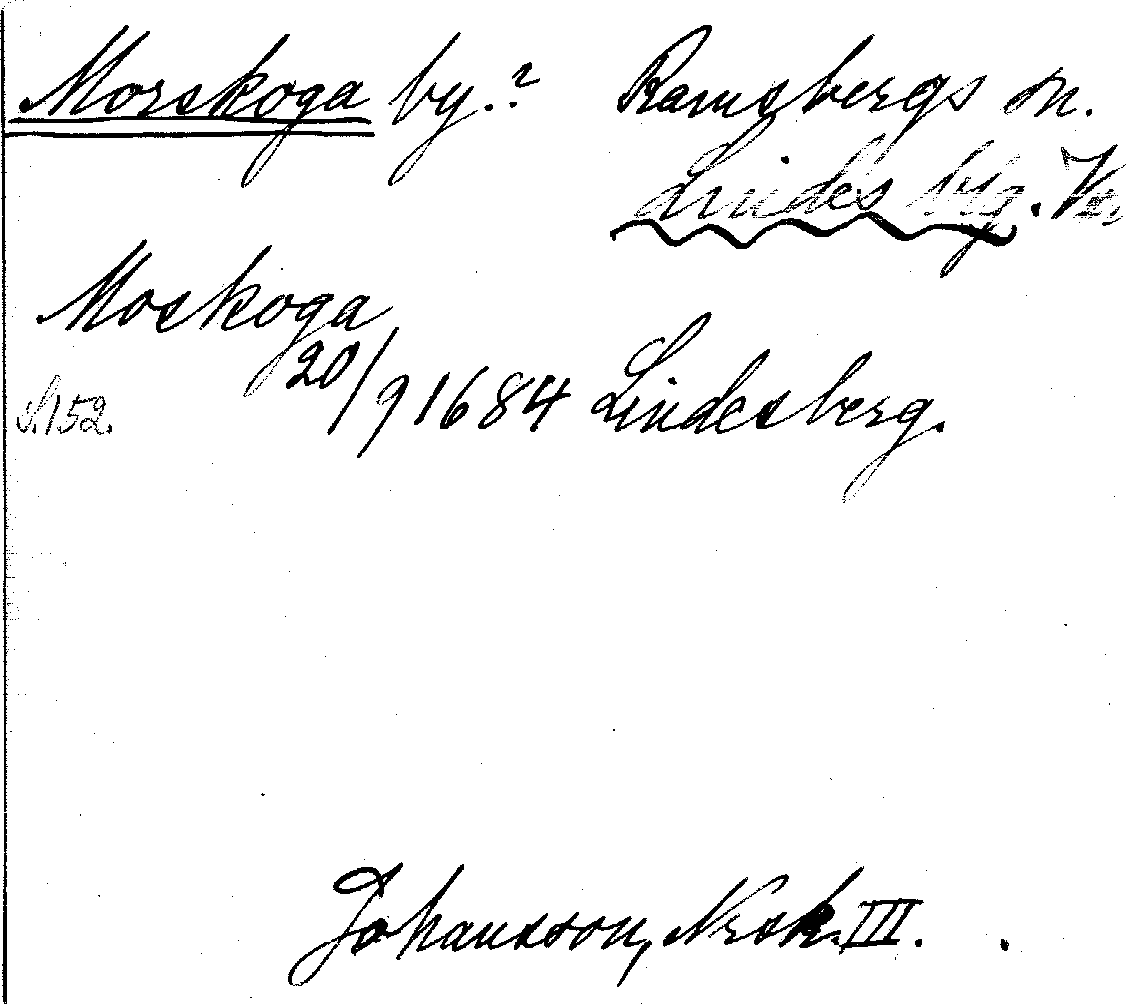 Morskoga by.? Ramsbergs sn.
Lindes blg. Vm.
Moskoga
s.152. 20/9 1684 Lindesberg.
Johansson, Nrsk. III.